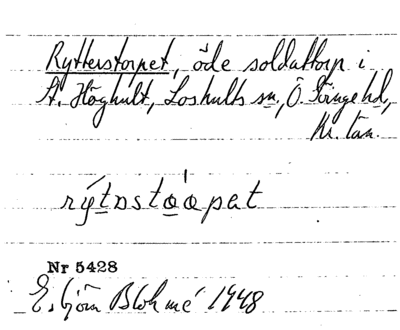 Rytterstorpet, öde soldattorp i
St. Höghult, Loshults sn., Ö. Göinge hd,
Kr. län.
rýtɒstòͅoͅpet
Nr 5428
Esbjörn Blohmé 1948